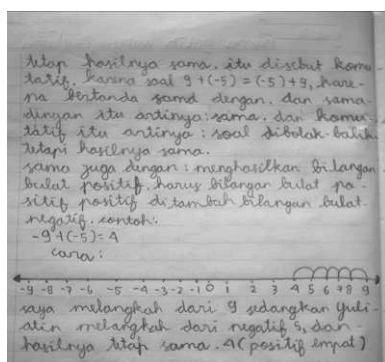 tetap hasilnya sama. itu disebut komu-
tatif. karena soal 9 + (-5) = (-5) + 9, kare-
na bertanda sama dengan. dan sama
dengan itu artinya : sama. dan komu-
tatif itu artinya : soal dibolak-balik
tetapi hasilnya sama.
sama juga dengan : menghasilkan bilangan
bulat positif. harus bilangan bulat po-
sitif positif di tambah bilangan bulat
negatif. contoh:
-9 + (-5) = 4
cara :
-9 -8 -7 -6 -5 -4 -3 -2 -1 0 1 2 3 4 5 6 7 8 9
saya melangkah dari 9 sedangkan Yuli-
atin melangkah dari negatif 5, dan
hasilnya tetap sama. 4 (positif empat)